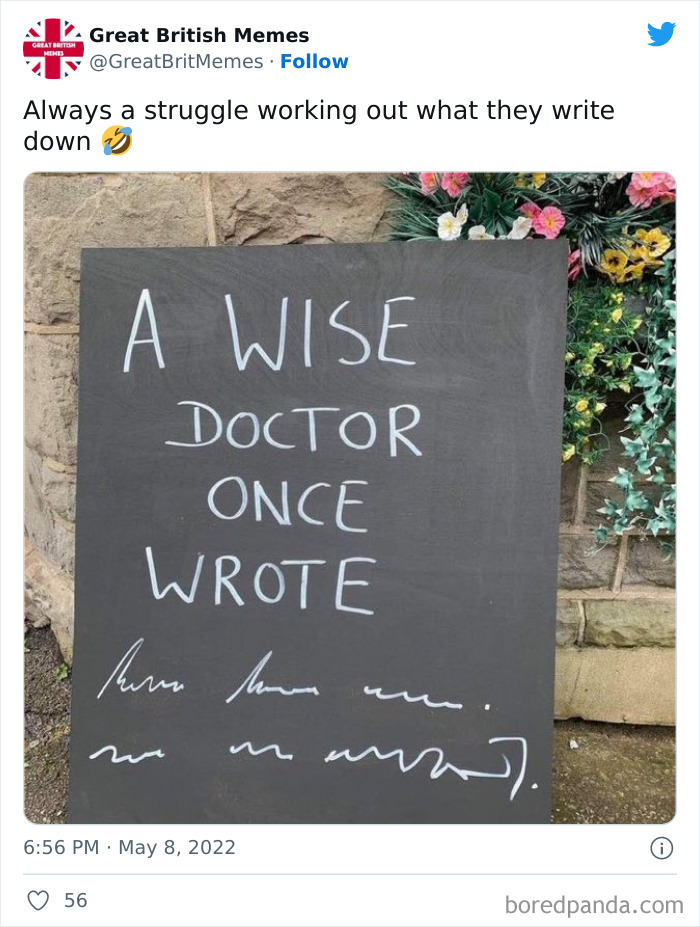 GREAT BRITISH
MEMES
Great British Memes
@GreatBritMemes · Follow
Always a struggle working out what they write
down 🤣
A WISE
DOCTOR
ONCE
WROTE
6:56 PM · May 8, 2022
56
boredpanda.com